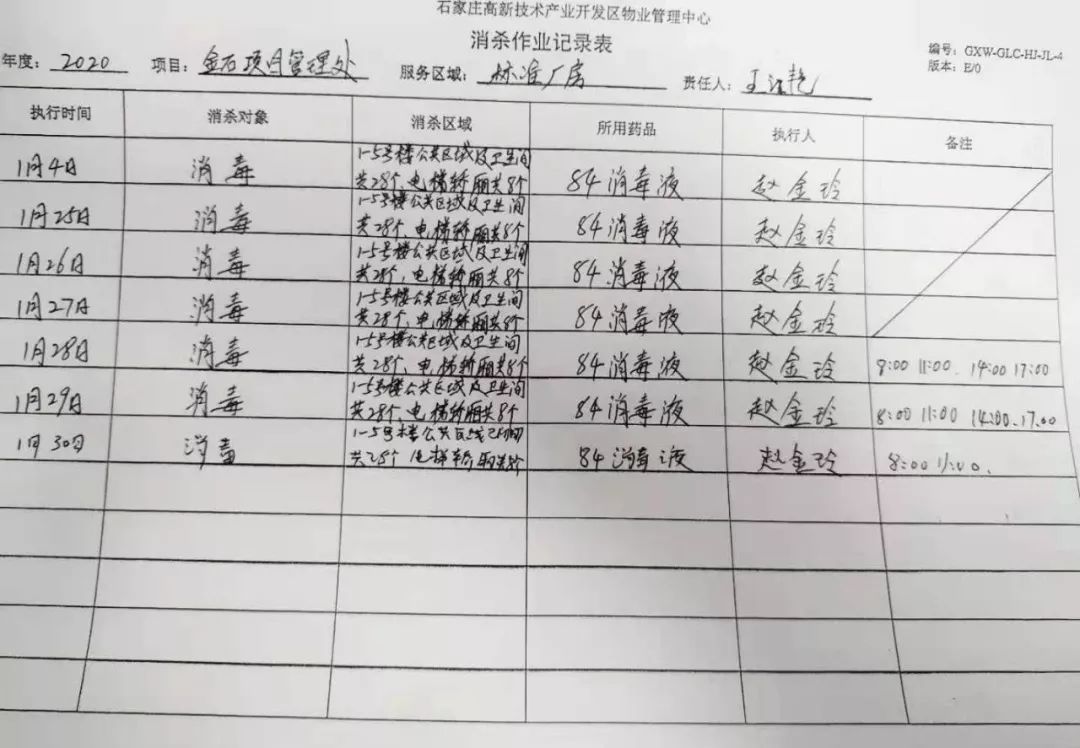 石家庄高新技术产业开发区物业管理中心
消杀作业记录表
编号：GXW-GLC-HJ-JL-4
版本：E/0
年度：2020 项目：金石项目管理处 服务区域：标准厂房 责任人：王江艳
执行时间 消杀对象 消杀区域 所用药品 执行人 备注
1月4日 消毒 1-5号楼公共区域及卫生间
共28个，电梯轿厢共8个 84消毒液 赵金玲
1月25日 消毒 1-5号楼公共区域及卫生间
共28个，电梯轿厢共8个 84消毒液 赵金玲
1月26日 消毒 1-5号楼公共区域及卫生间
共28个，电梯轿厢共8个 84消毒液 赵金玲
1月27日 消毒 1-5号楼公共区域及卫生间
共28个，电梯轿厢共8个 84消毒液 赵金玲
1月28日 消毒 1-5号楼公共区域及卫生间
共28个，电梯轿厢共8个 84消毒液 赵金玲 8:00 11:00. 14:00 17:00
1月29日 消毒 1-5号楼公共区域及卫生间
共28个，电梯轿厢共8个 84消毒液 赵金玲 8:00 11:00 14:00.17.00
1月30日 消毒 1-5号楼公共区域
共28个 电梯轿厢共8个 84消毒液 赵金玲 8:00 11:00.